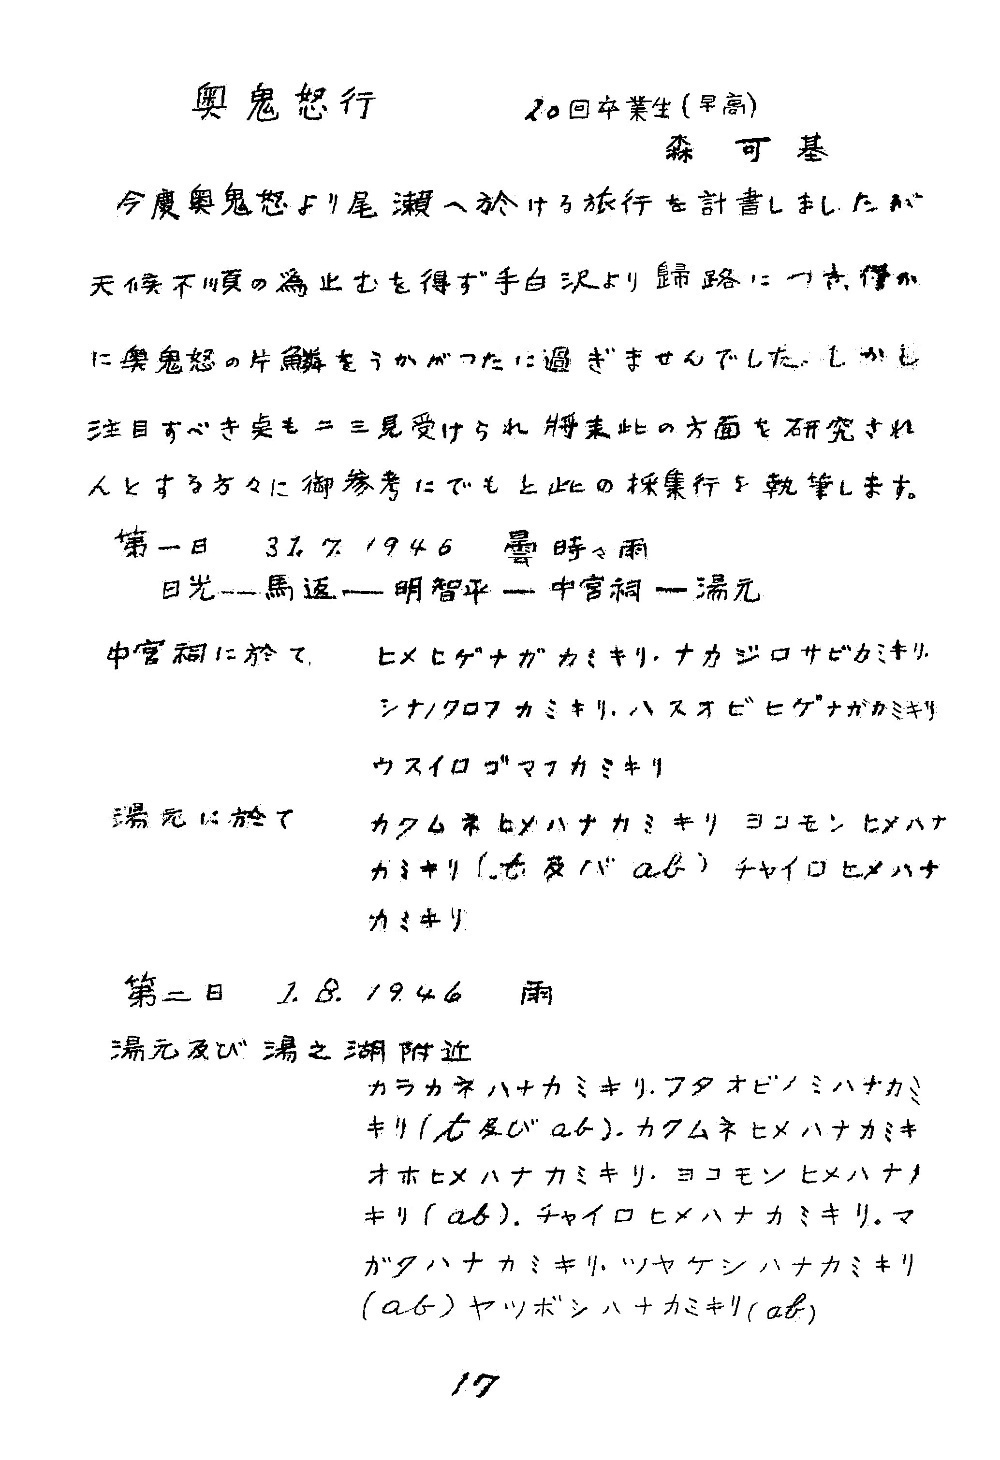 奥鬼怒行
20回卒業生(早高)
森 可 基
今度奥鬼怒より尾瀬へ於ける旅行を計書しましたが
天候不順の為止むを得ず手白沢より歸路につき、僅か
に奥鬼怒の片鱗をうかがつたに過ぎませんでした。しかし
注目すべき点も二三見受けられ將来此の方面を研究され
んとする方々に御参考にでもと此の採集行を執筆します。
第一日 31.7.1946 曇時々雨
日光―馬返―明智平―中宮祠―湯元
中宮祠に於て ヒメヒゲナガカミキリ・ナカジロサビカミキリ・
シナノクロフカミキリ・ハスオビヒゲナガカミキリ
ウスイロゴマフカミキリ
湯元に於て カクムネヒメハナカミキリ ヨコモンヒメハナ
カミキリ(t及バab) チャイロヒメハナ
カミキリ
第二日 1.8.1946 雨
湯元及び湯之湖附近
カラカネハナカミキリ・フタオビノミハナカミ
キリ(t及びab)・カクムネヒメハナカミキ
オホヒメハナカミキリ・ヨコモンヒメハナ
キリ(ab)・チャイロヒメハナカミキリ・マ
ガタハナカミキリ・ツヤケシハナカミキリ
(ab)ヤツボシハナカミキリ(ab)
17